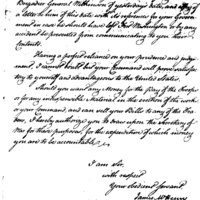 Brigadier General Wilkinson of yesterdays date, and copy of
a letter to him of this date with its references for your Govern-
ment in case he should have left Fort Washington or by any
accident be prevented from communicating to you their
contents.
Having a perfect reliance on your prudence and judge-
ment, I cannot doubt but your command will prove satisfac-
tory to yourself and advantageous to the United States.
Should you want any Money for the pay of the Troops
or for any indispensable material in the execution of the work
or your command, and can sell your Bills to any of the Tra-
ders, I hereby authorize you to draw upon the Secretary of
War for those purposes, for the expenditure of which money
you are to be accountable.
I am Sir,
with respect
Your obedient servant
James McHenry